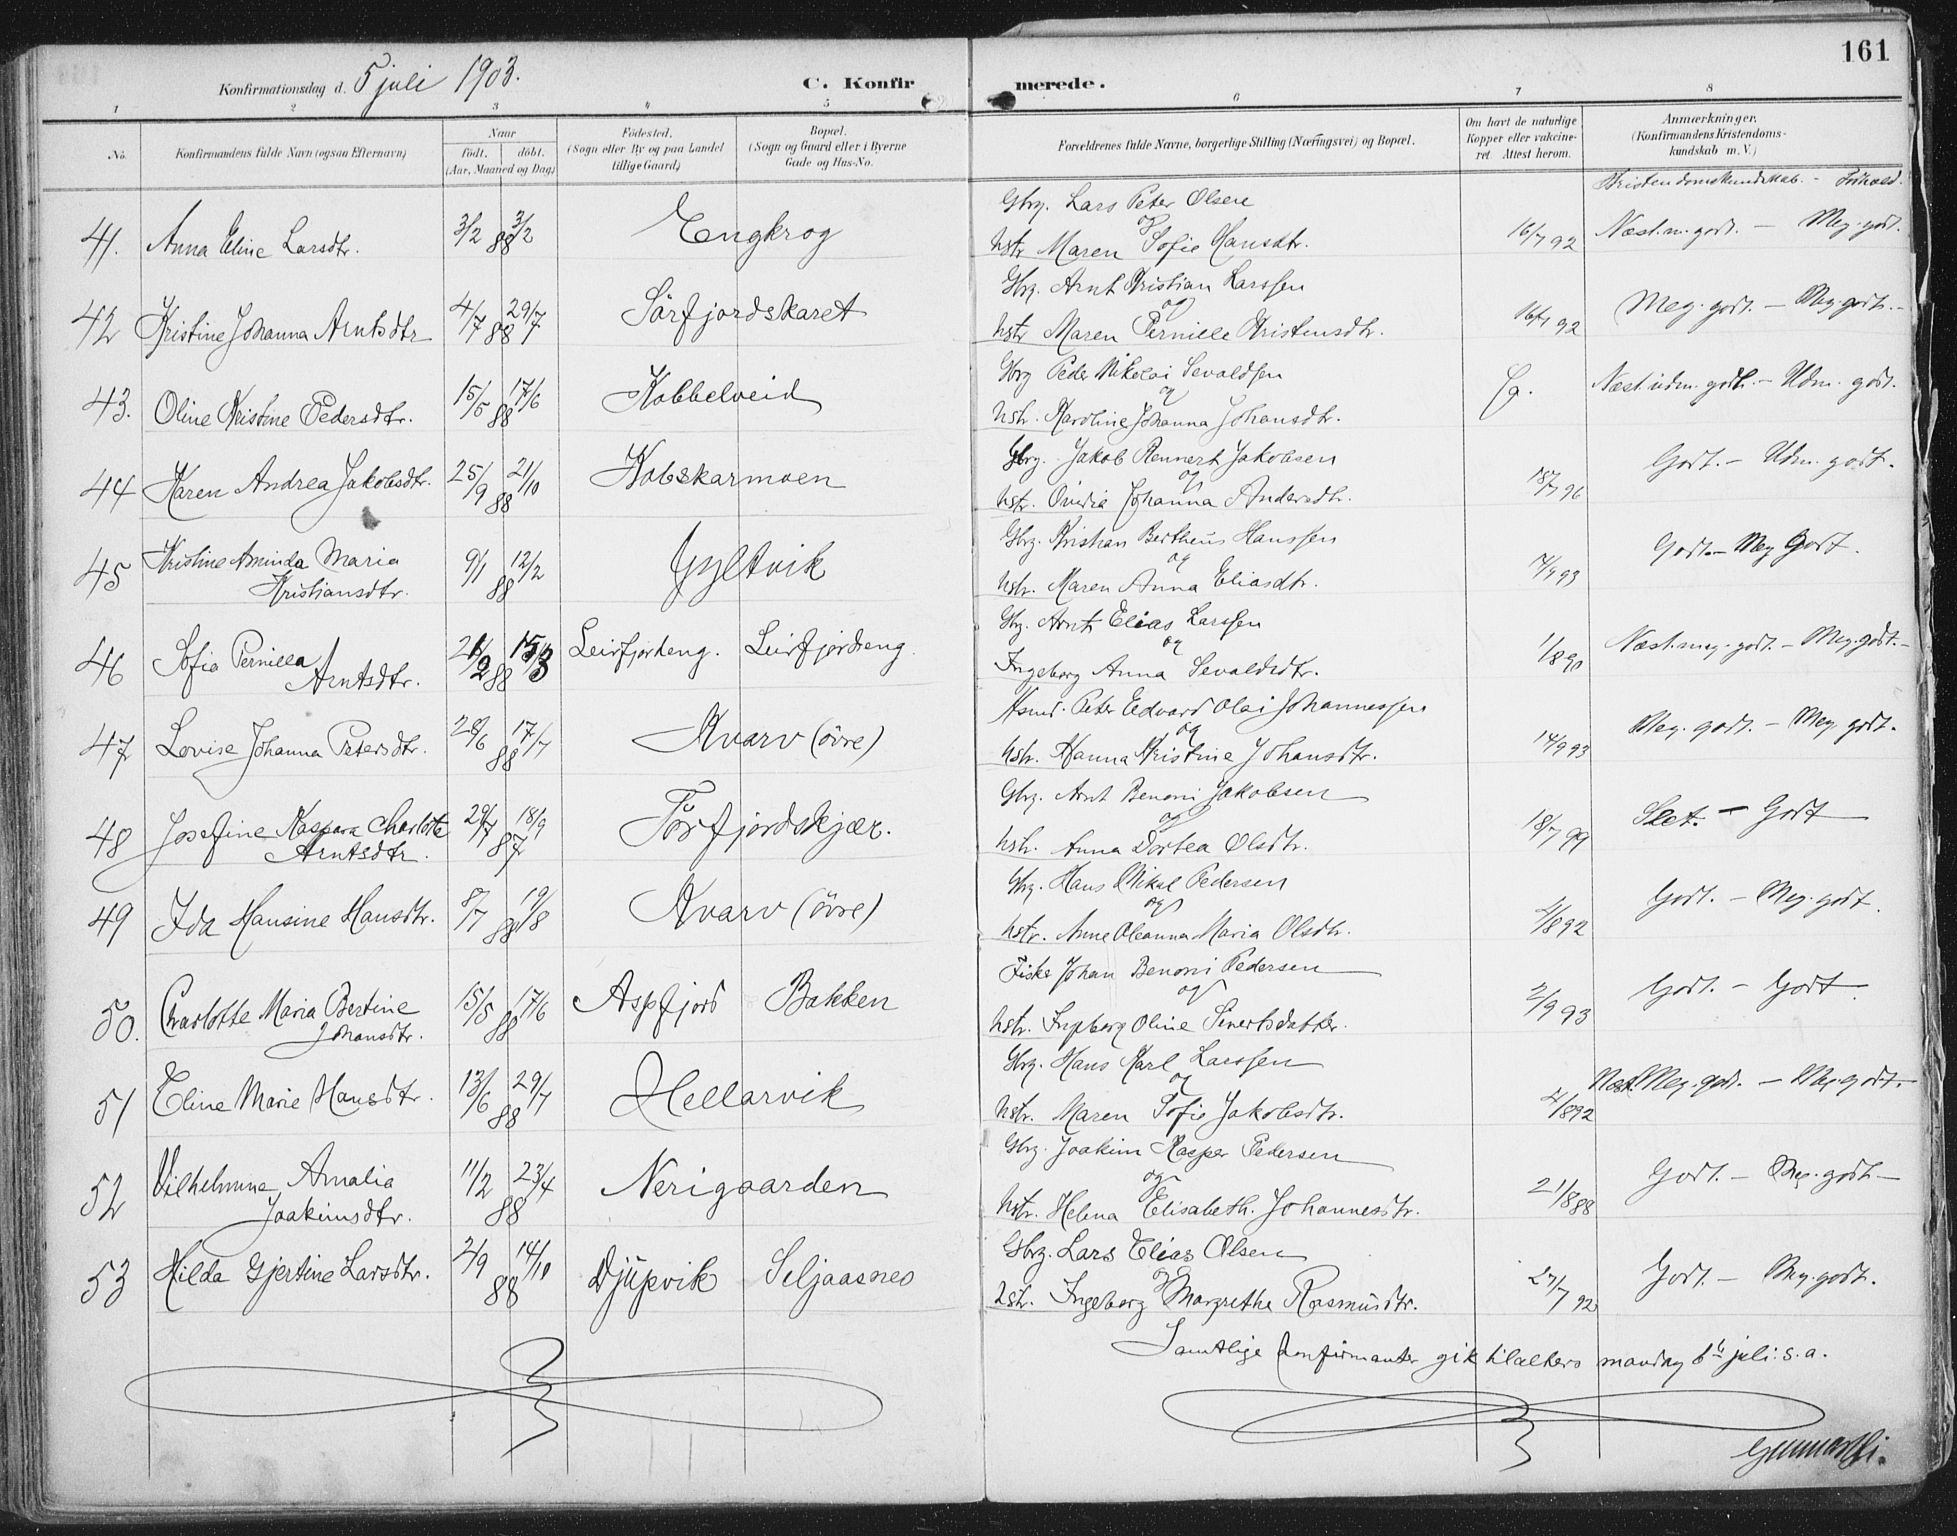 161
Konfirmationsdag d. 5 juli 1903. C. Konfirmerede.
1 2 3 4 5 6 7 8
No. Konfirmandens fulde Navn (ogsaa Efternavn)
Naar født. døbt. (Aar, Maaned og Dag)
Fødested. (Sogn eller By og paa Landet tillige Gaard)
Bopæl. (Sogn og Gaard eller i Byerne Gade og Hus-No.
Forældrenes fulde Navne, borgerlige Stilling (Næringsvei) og Bopæl.
Om havt de naturlige Kopper eller vakcineret. Attest herom.
Anmærkninger. (Konfirmandens Kristendomskundskab m. V.)
Kristendomskundskab. - Forhold.
Gbrg. Lars Peter Olsen
og
41. Anna Eline Larsdtr. 3/2 88 3/2 Engkrog hstr Maren Sofie Hansdtr. 16/7 92 Næst. m. godt. - Meg. godt.
Gbrg. Arnt Kristian Larssen
og
42 Kristine Johanna Arntsdtr 4/7 88 29/7 Sørfjordskaret hstr Maren Pernille Kristensdtr. 16/7 92 Meg. godt. - Meg. godt. -
Gbrg Peder Nikolai Sevaldsen
og
43. Oline Kristine Pedersdtr. 15/5 88 17/6 Kobbelveid hstr. Karoline Johanna Johansdtr. Næst. udm. godt. - Udm. godt.
Gbrg. Jakob Rennert Jakobsen
og
44 Karen Andrea Jakobsdtr. 25/9 88 21/10 Kobskarmoen hstr. Ovidia Johanna Andersdtr. 18/7 96 Godt. - Udm. godt.
Gbrg. Kristian Bertheus Hanssen
og
45 Kristine Aminda Maria Kristiansdtr. 9/1 88 12/2 Gyltvik hstr. Maren Anna Eliasdtr. 7/9 93 Godt. - Meg Godt.
Gbrg. Arnt Elias Larssen
og
46 Sofie Pernilla Arntsdtr. 88 Leirfjordeng. Leirfjordeng. Ingeborg Anna Sevaldsdtr. 1/8 90 Næst. meg. godt. - Meg. godt. -
Peter Edvard Olai Johannessen
og
47 Lovise Johanna Petersdtr. 28/6 88 17/7 Kvarv (øvre) hstr. Hanna Kristine Johansdtr. 14/9 93 Meg. godt. - Meg. godt.
Gbrg. Arnt Benoni Jakobsen
og
48 Josefine Kaspara Charlotte Arntsdtr. 29/7 87 18/9 Tørfjordskjær. hstr. Anna Dortea Olsdtr. 18/7 99 Slet. - Godt
Gbrg. Hans Mikal Pedersen
og
49 Ida Hansine Hansdtr. 8/7 88 19/8 Kvarv (øvre) hstr. Anne Oleanna Maria Olsdtr. 4/8 92 Godt. - Meg. godt.
Fisker Johan Benoni Pedersen
og
50. Charlotte Maria Bertine Johansdtr. 15/5 88 17/6 Aspfjord Bakken hstr. Ingeborg Oline Sivertsdatter. 2/9 93 Godt. - Godt.
Gbrg. Hans Karl Larssen
og
51 Eline Marie Hansdtr. 13/6 88 29/7 Hellarvik hstr. Maren Sofie Jakobsdtr. 4/8 92 Næst. Meg. godt. - Meg. godt. -
Gbrg. Joakim Kasper Pedersen
og
52 Vilhelmine Amalia Joakimsdtr. 11/2 88 23/4 Nerigaarden hstr. Helena Elisabeth. Johannesdtr. 21/8 88 Godt. - Meg. godt. -
Gbrg. Lars Elias Olsen
og
53 Hilda Gjertine Larsdtr. 2/9 88 14/10 Djupvik Seljaasnes hstr. Ingeborg Margrethe Rasmusdtr. 27/7 92 Godt. - Meg. godt.
Samtlige konfirmanter gik tilalters mandag 6te juli: s. a.